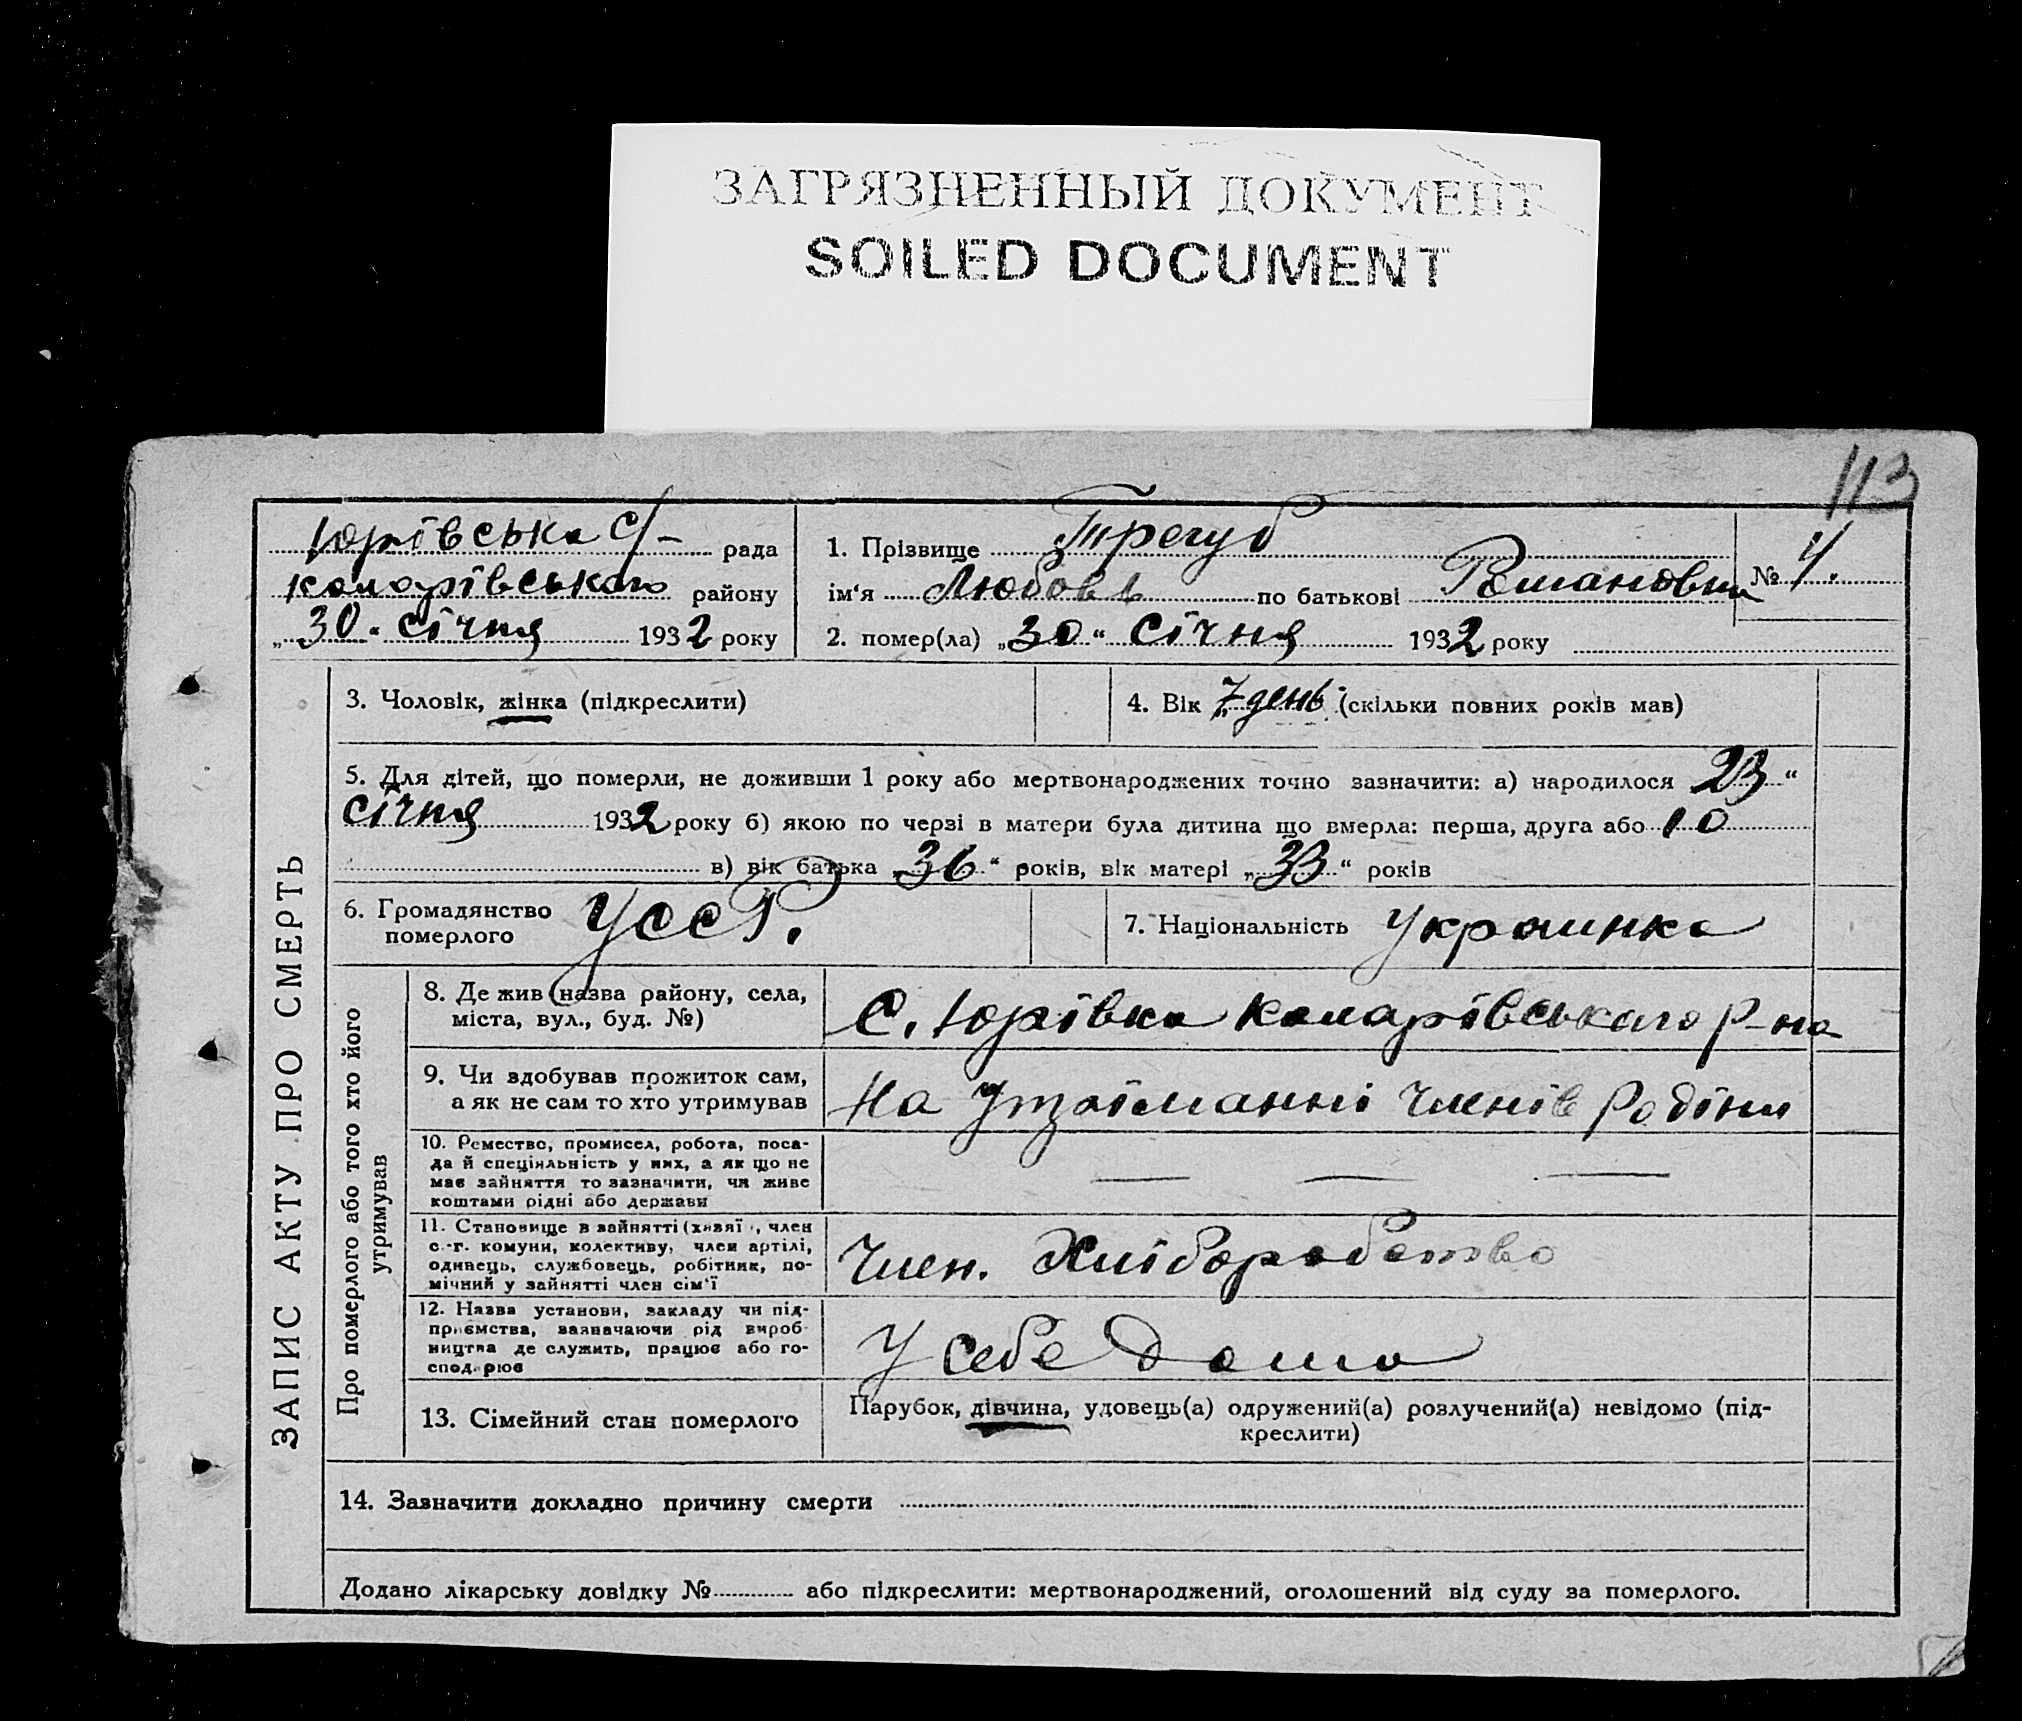 ЗАГРЯЗНЕННЫЙ ДОКУМЕНТ
SOILED DOCUMENT
113
Юрівська с/- рада
Комарівського району
„30“ січня 1932 року
1. Прізвище Трегуб
ім‘я Любовь по батькові Романовна
№ 4.
2. помер(ла) „30“ січня 1932 року
ЗАПИС АКТУ ПРО СМЕРТЬ
3. Чоловік, жінка (підкреслити)
4. Вік 7 день (скільки повних років мав)
5. Для дітей, що померли, не доживши 1 року або мертвонароджених точно зазначити: а) народилося 23“
січня 1932 року б) якою по черзі в матери була дитина що вмерла: перша, друга або 10
в) вік батька „36“ років, вік матері „33“ років
6. Громадянство
померлого УССР.
7. Національність Украинка
Про померлого або того хто його
утримував
8. Де жив (назва району, села,
міста, вул., буд. №)
С. Юрівка Комарівського р-на
9. Чи здобував прожиток сам,
а як не сам то хто утримував
На утріманні членів родіни
10. Ремество, промисел, робота, поса-
да й спеціяльність у них, а як що не
має зайняття то зазначити, чи живе
коштами рідні або держави
— — —
11. Становище в зайнятті (хазяї , член
с.-г. комуни, колективу, член артілі,
одинець, службовець, робітник, по-
мічний у зайнятті член сім‘ї
Член. Хліборобство
12. Назва установи, закладу чи під-
приємства, зазначаючи рід вироб-
ництва де служить, працює або го-
сподарює
У себе дома
13. Сімейний стан померлого
Парубок, дівчина, удовець(а) одружений(а) розлучений(а) невідомо (під-
креслити)
14. Зазначити докладно причину смерти
Додано лікарську довідку № або підкреслити: мертвонароджений, оголошений від суду за померлого.